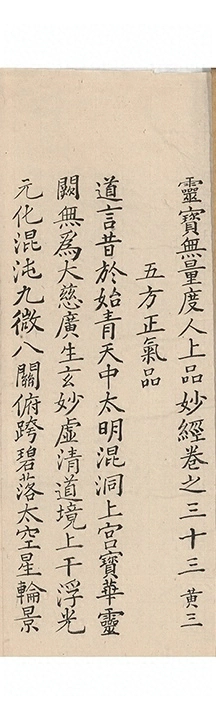 靈寶無量度人上品妙經卷之三十三 黃三
五方正氣品
道言昔於始青天中太明混洞上宮寶華靈
闕無為大慈廣生玄妙虛清道境上干浮光
元化混沌九微八關俯跨碧落太空星輪景